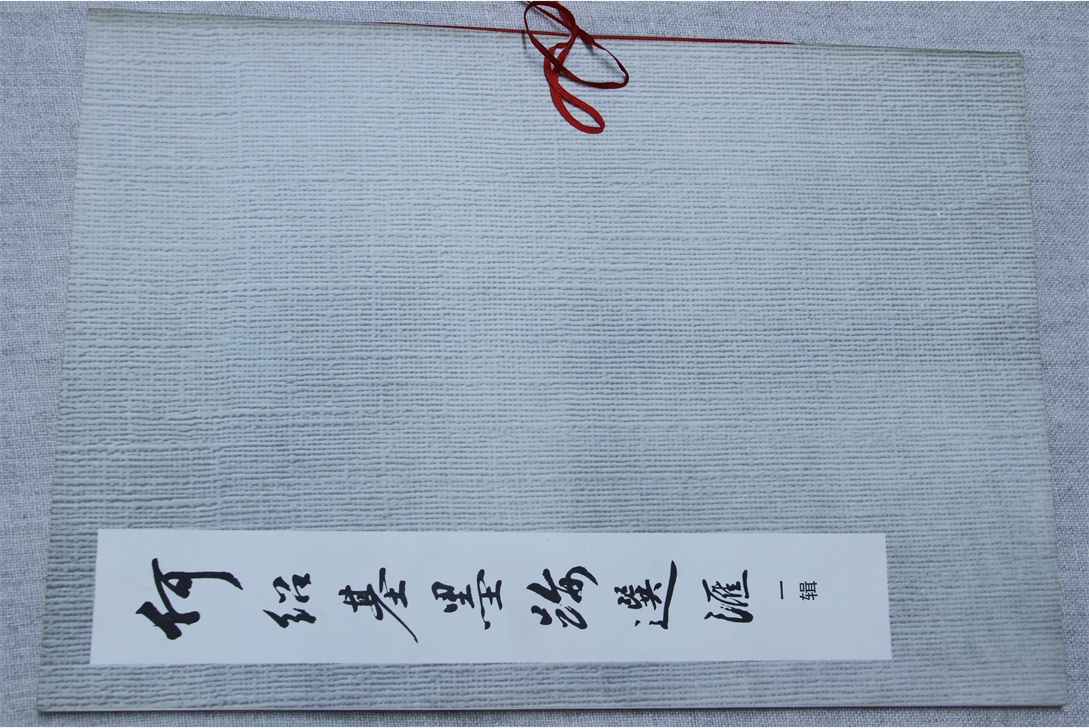 何紹基墨跡選滙
一辑